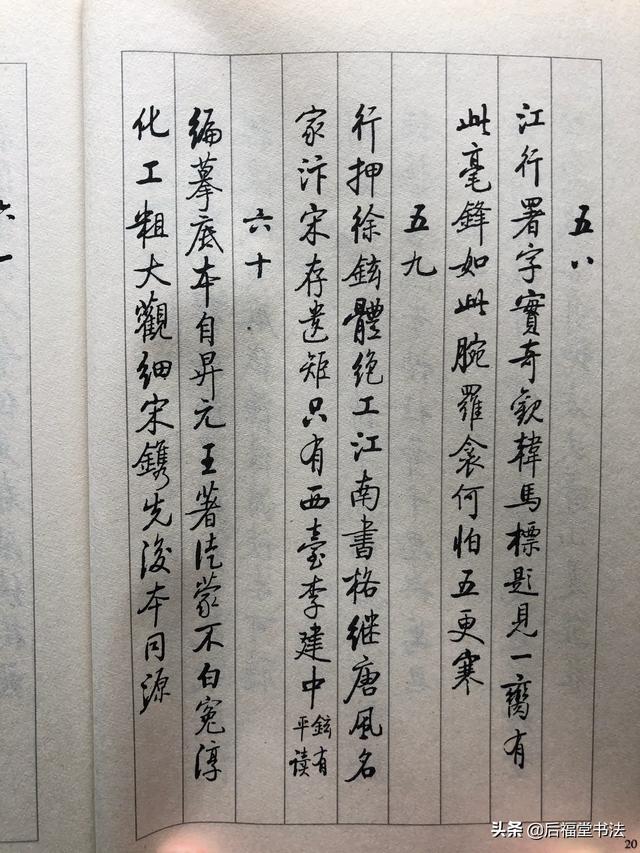 五八
江行署字實奇觀韓馬標題見一臠有
此毫鋒如此腕羅衾何怕五更寒
五九
行押徐鉉體絕工江南書格继唐風名
家汴宋存遺矩只有西臺李建中鉉有
平讀
六十
編摹底本自昇元王著徒蒙不白冤淳
化工粗大觀细宋鐫先後本同源
六一
20
头条 @后福堂书法